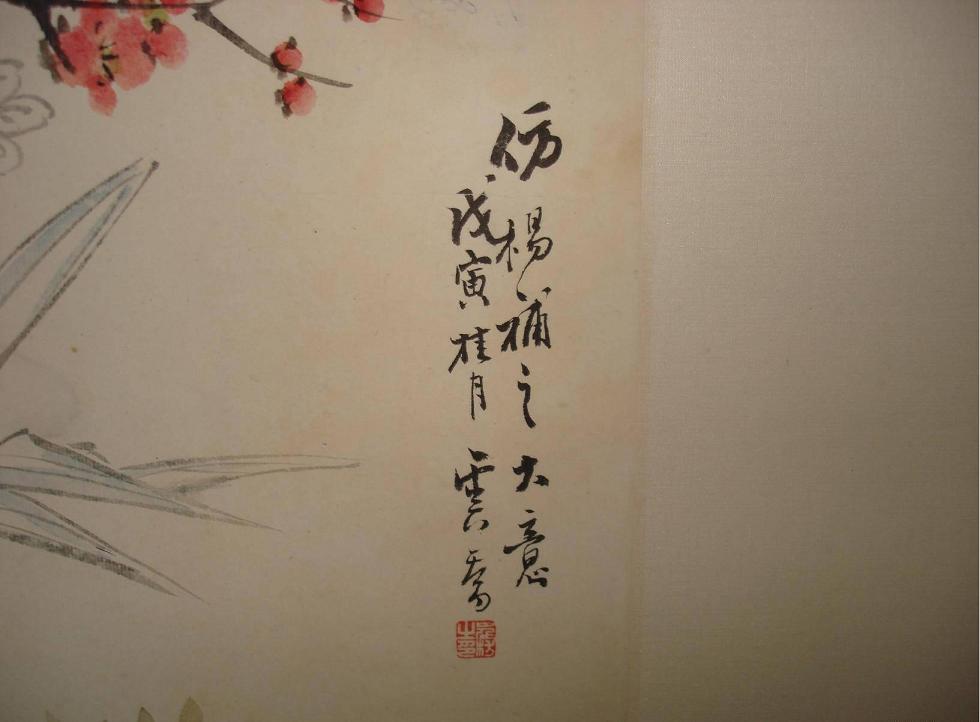 仿楊補之大意
戊寅桂月雲喬